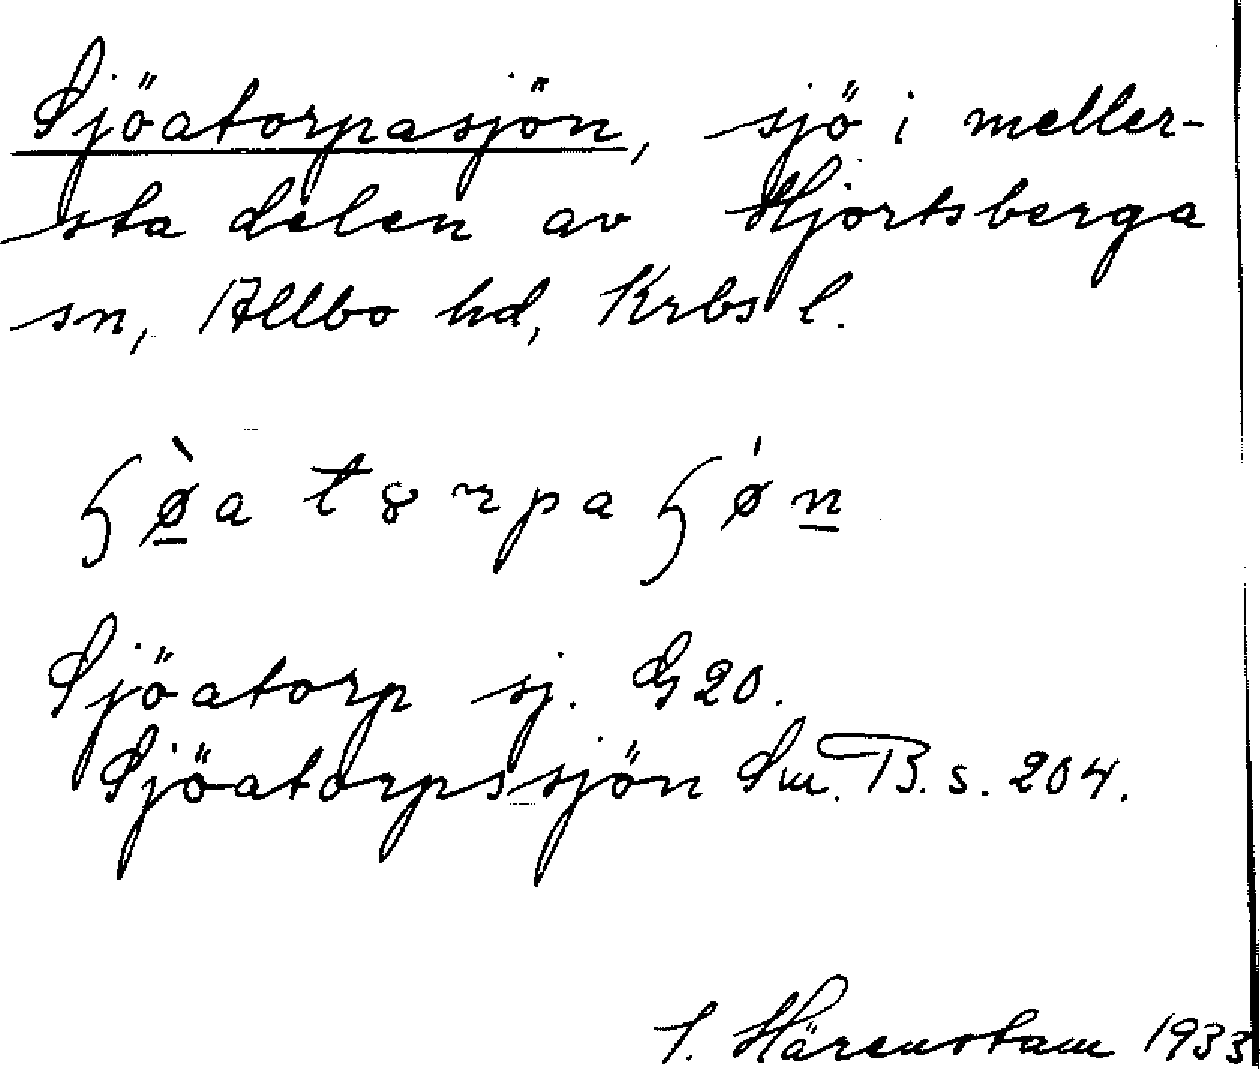 Sjöatorpasjön, sjö i meller-
sta delen av Hjortsberga
sn, Allbo hd, Krbs l.
ɧø̱̀a tȣrpa ɧǿṉ
Sjöatorp sj. G20.
Sjöatorpssjön Sm. B. s. 204.
Härenstam 1933